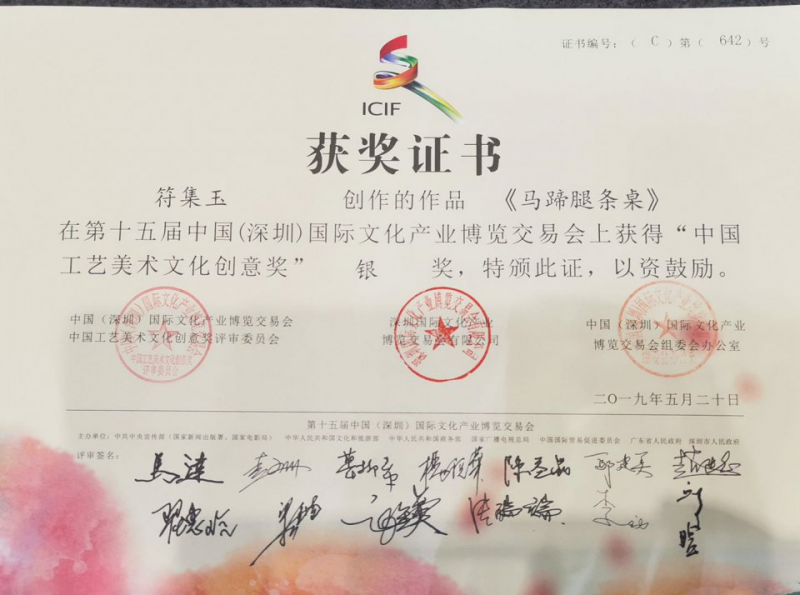 证书编号：（ C ）第（ 642 ）号
ICIF
获奖证书
符集玉 创作的作品 《马蹄腿条桌》
在第十五届中国(深圳)国际文化产业博览交易会上获得“中国
工艺美术文化创意奖” 银 奖，特颁此证，以资鼓励。
中国（深圳）国际文化产业博览交易会
中国工艺美术文化创意奖评审委员会
深圳国际文化产业
博览交易会有限公司
中国（深圳）国际文化产业
博览交易会组委会办公室
二〇一九年五月二十日
第十五届中国（深圳）国际文化产业博览交易会
主办单位：中共中央宣传部（国家新闻出版署、国家电影局） 中华人民共和国文化和旅游部 中华人民共和国商务部 国家广播电视总局 中国国际贸易促进委员会 广东省人民政府 深圳市人民政府
评审签名：